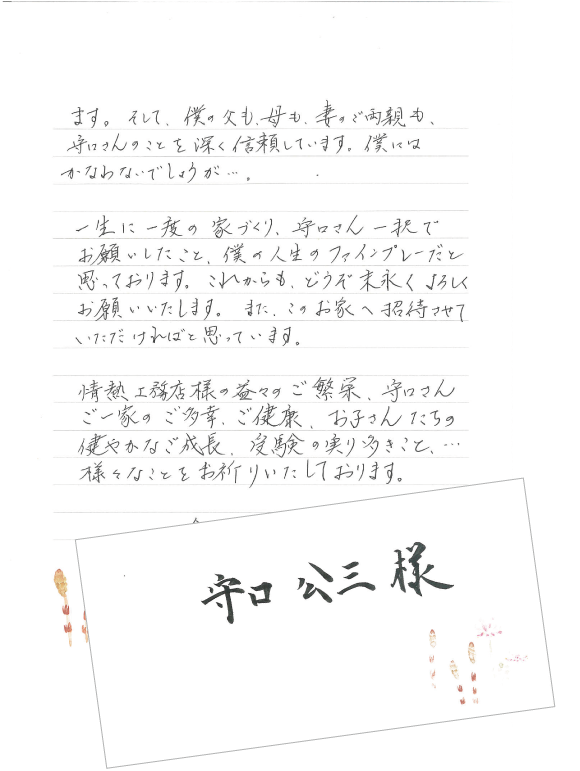 ます。そして、僕の父も、母も、妻のご両親も、
守口さんのことを深く信頼しています。僕には
かなわないでしょうが…。
一生に一度の家づくり、守口さん一択で
お願いしたこと、僕の人生のファインプレーだと
思っております。これからも、どうぞ末永くよろしく
お願いいたします。また、このお家へ招待させて
いただければと思っています。
情熱工務店様の益々のご繁栄、守口さん
ご一家のご多幸、ご健康、お子さんたちの
健やかなご成長、受験の実り多きこと、…
様々なことをお祈りいたしております。
守口 公三 様